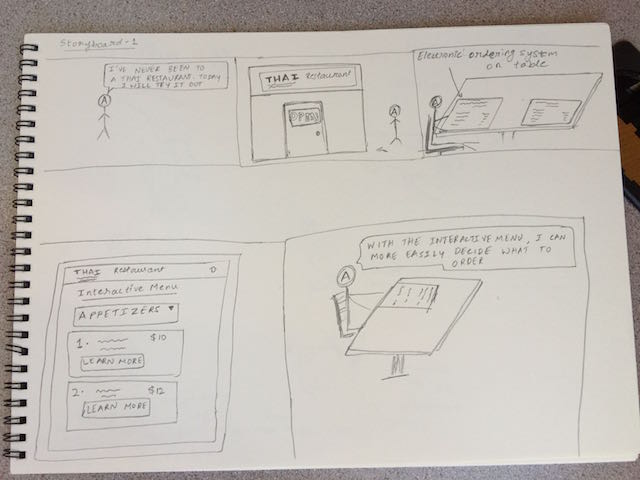 Storyboard-1
I'VE NEVER BEEN TO
A THAI RESTAURANT. TODAY
I WILL TRY IT OUT
A
THAI Restaurant
OPEN
A
Electronic ordering system
on table
A
THAI Restaurant
Interactive Menu
APPETIZERS
1. $10
LEARN MORE
2. $12
LEARN MORE
WITH THE INTERACTIVE MENU, I CAN
MORE EASILY DECIDE WHAT TO
ORDER
A